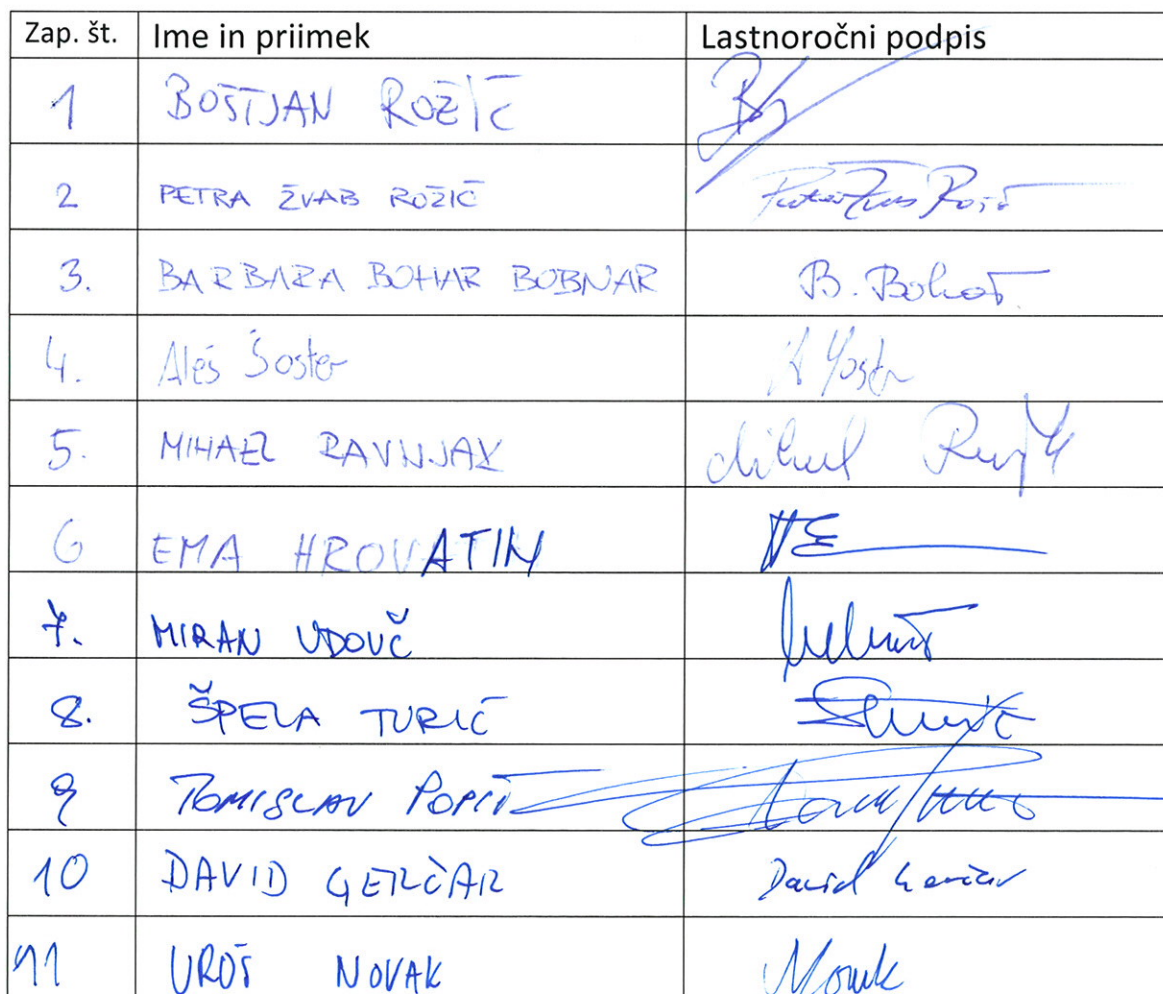 Zap. št. Ime in priimek Lastnoročni podpis
1 BOŠTJAN ROŽIČ
2 PETRA ŽVAB ROŽIČ
3. BARBARA BOHAR BOBNAR B. Bohar
4. Aleš Šoster A Šoster
5. MIHAEL RAVNJAK
6 EMA HROVATIN HE
7. MIRAN UDOVČ
8. ŠPELA TURIČ
9 TOMISLAV POPIT
10 DAVID GERČAR David Gerčar
11 UROŠ NOVAK Novak